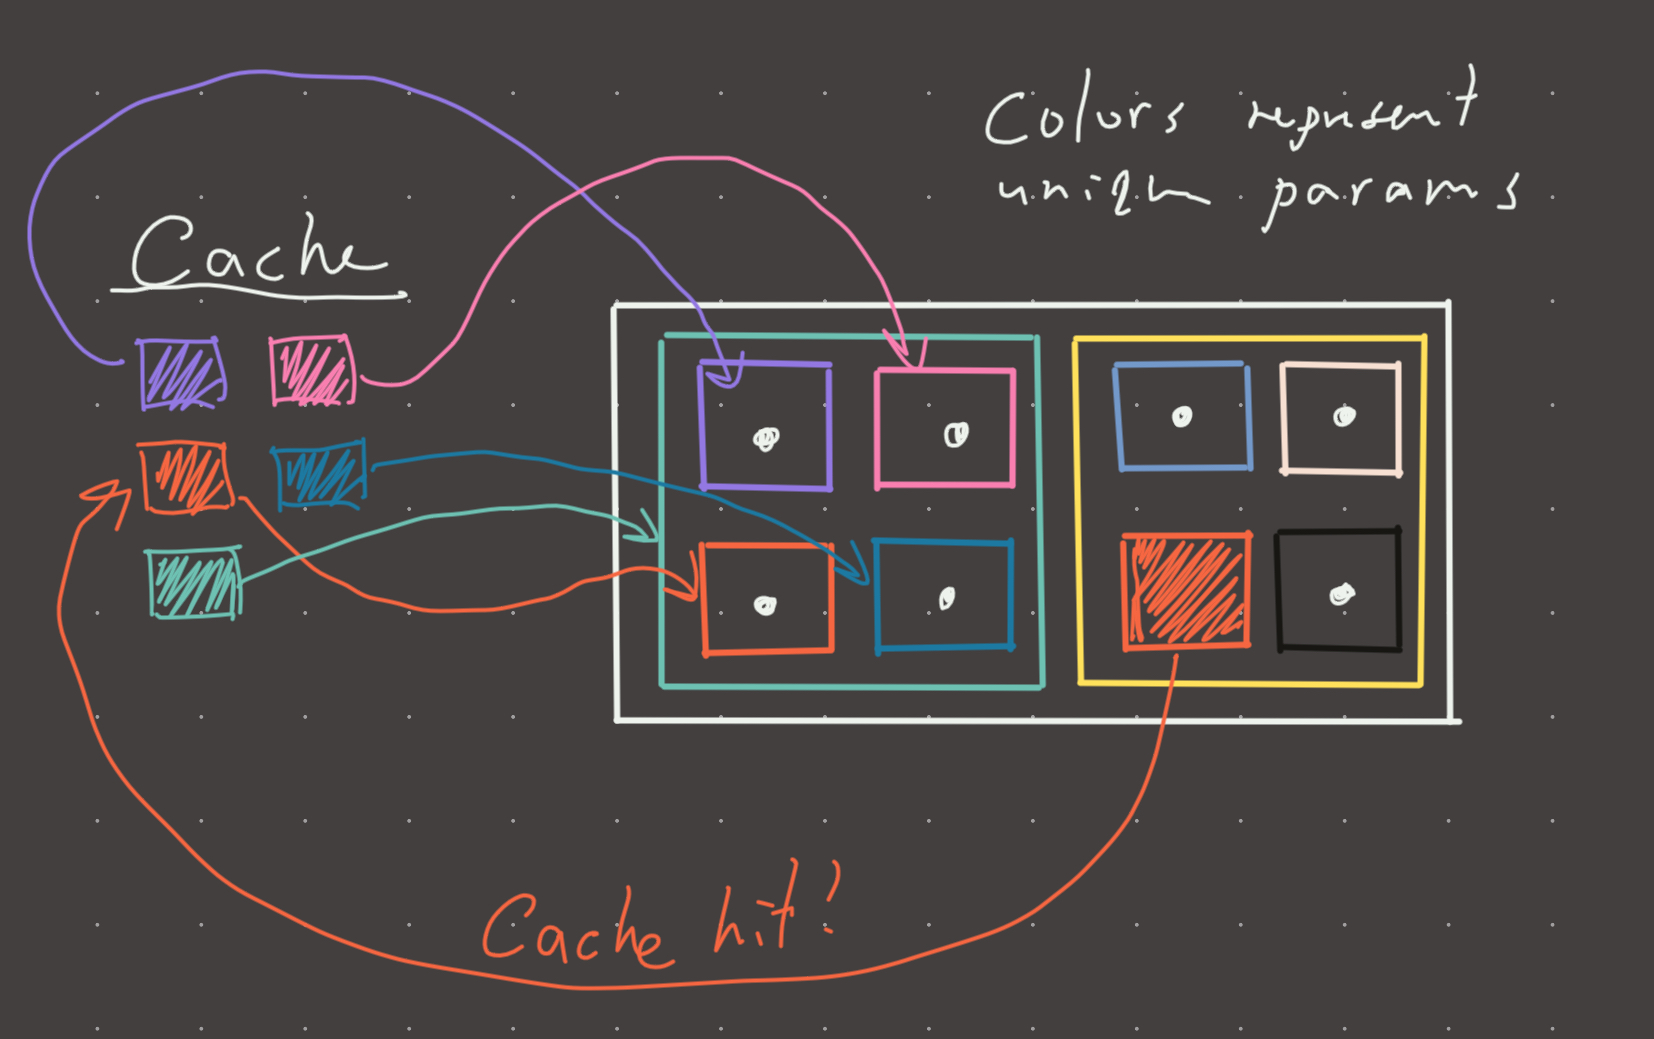 Colors represent
unique params
Cache
Cache hit!